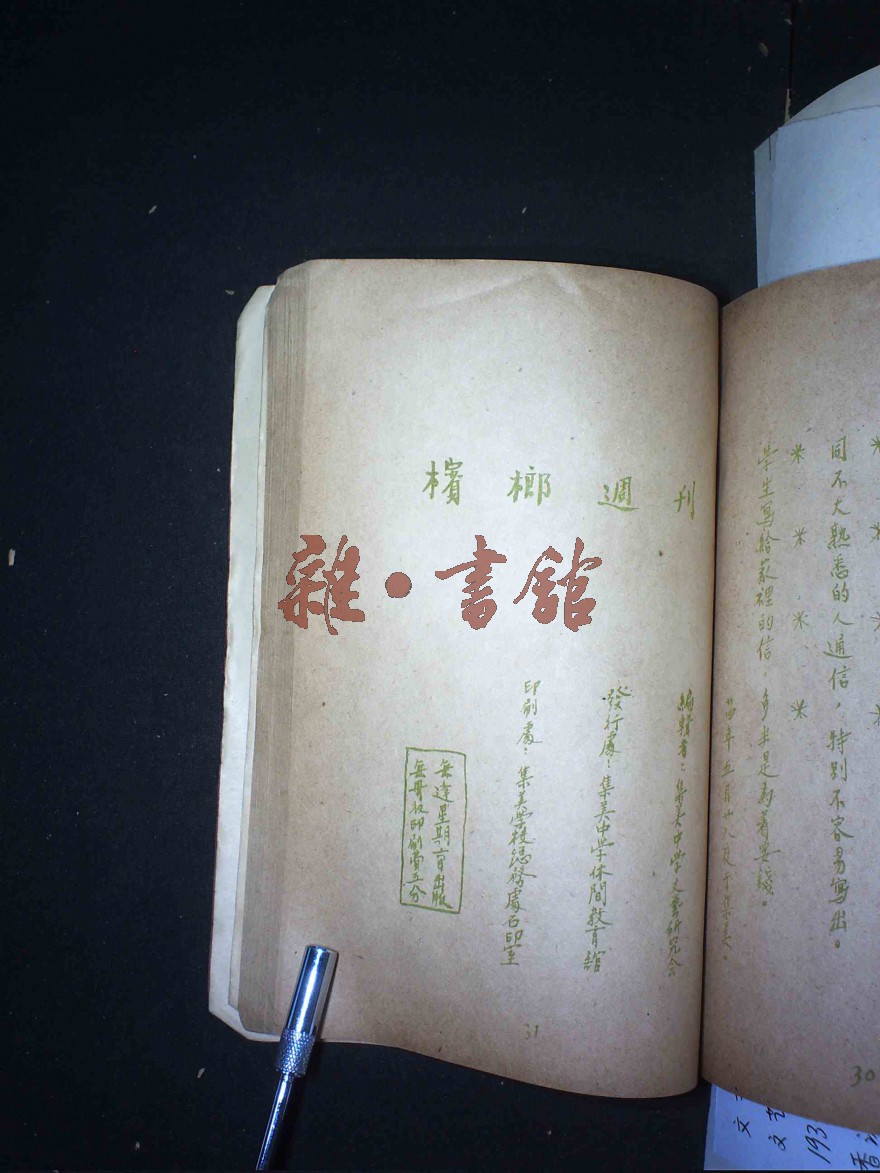 同不大熟悉的人通信，特別不容易寫出。
學生寫給家裡的信，多半是為着要錢。
30
檳榔週刊
雜·書館
編輯者：集美中學文藝研究會
發行處：集美中學休閒教育館
印刷處：集美學校總務處石印室
每逢星期六日出版
每冊收印刷費五分
31
193